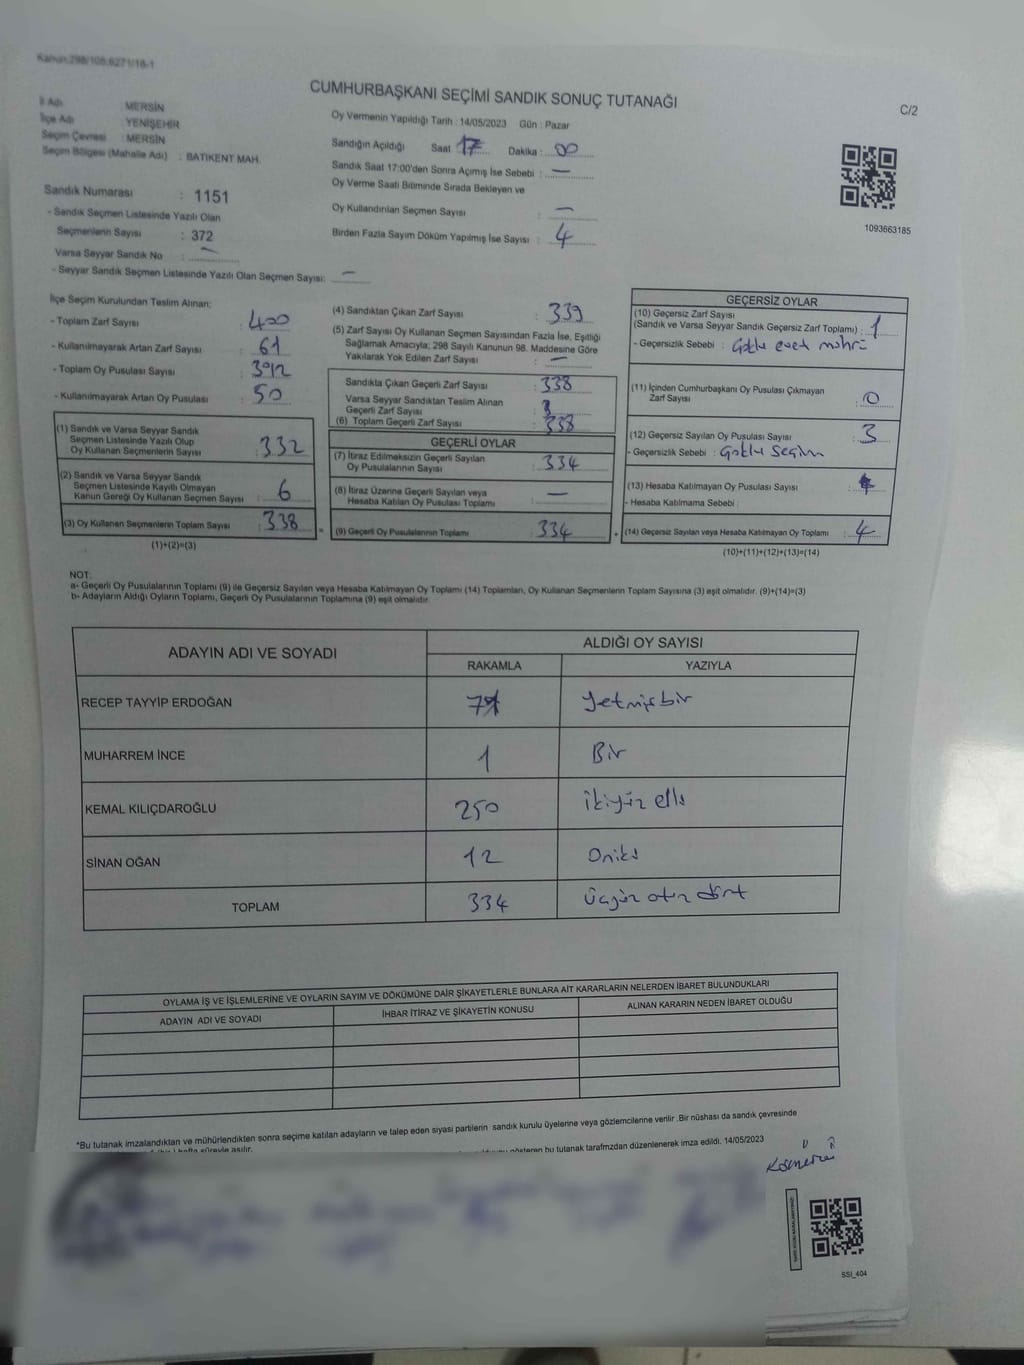 Kanun:298/105;6271/18-1
CUMHURBAŞKANI SEÇİMİ SANDIK SONUÇ TUTANAĞI
C/2
İl Adı : MERSİN
İlçe Adı : YENİŞEHİR
Seçim Çevresi : MERSİN
Seçim Bölgesi (Mahalle Adı) : BATIKENT MAH.
Sandık Numarası : 1151
- Sandık Seçmen Listesinde Yazılı Olan
Seçmenlerin Sayısı : 372
Varsa Seyyar Sandık No : –
- Seyyar Sandık Seçmen Listesinde Yazılı Olan Seçmen Sayısı: –
Oy Vermenin Yapıldığı Tarih : 14/05/2023 Gün : Pazar
Sandığın Açıldığı Saat 17 Dakika : 00
Sandık Saat 17:00'den Sonra Açımış İse Sebebi : –
Oy Verme Saati Bitiminde Sırada Bekleyen ve
Oy Kullandırılan Seçmen Sayısı : –
Birden Fazla Sayım Döküm Yapılmış İse Sayısı : 4
1093663185
İlçe Seçim Kurulundan Teslim Alınan:
- Toplam Zarf Sayısı : 400
- Kullanılmayarak Artan Zarf Sayısı : 61
- Toplam Oy Pusulası Sayısı : 392
- Kullanılmayarak Artan Oy Pusulası : 50
(1) Sandık ve Varsa Seyyar Sandık
Seçmen Listesinde Yazılı Olup
Oy Kullanan Seçmenlerin Sayısı : 332
(2) Sandık ve Varsa Seyyar Sandık
Seçmen Listesinde Kayıtlı Olmayan
Kanun Gereği Oy Kullanan Seçmen Sayısı : 6
(3) Oy Kullanan Seçmenlerin Toplam Sayısı : 338
(1)+(2)=(3)
(4) Sandıktan Çıkan Zarf Sayısı : 339
(5) Zarf Sayısı Oy Kullanan Seçmen Sayısından Fazla İse, Eşitliği
Sağlamak Amacıyla; 298 Sayılı Kanunun 98. Maddesine Göre
Yakılarak Yok Edilen Zarf Sayısı : –
Sandıkta Çıkan Geçerli Zarf Sayısı : 338
Varsa Seyyar Sandıktan Teslim Alınan
Geçerli Zarf Sayısı :
(6) Toplam Geçerli Zarf Sayısı : 338
GEÇERLİ OYLAR
(7) İtiraz Edilmeksizin Geçerli Sayılan
Oy Pusulalarının Sayısı : 334
(8) İtiraz Üzerine Geçerli Sayılan veya
Hesaba Katılan Oy Pusulası Toplamı : –
(9) Geçerli Oy Pusulalarının Toplamı : 334
GEÇERSİZ OYLAR
(10) Geçersiz Zarf Sayısı
(Sandık ve Varsa Seyyar Sandık Geçersiz Zarf Toplamı) : 1
- Geçersizlik Sebebi : Çoklu evet mührü
(11) İçinden Cumhurbaşkanı Oy Pusulası Çıkmayan
Zarf Sayısı : 0
(12) Geçersiz Sayılan Oy Pusulası Sayısı : 3
- Geçersizlik Sebebi : Çoklu Seçim
(13) Hesaba Katılmayan Oy Pusulası Sayısı :
- Hesaba Katılmama Sebebi :
(14) Geçersiz Sayılan veya Hesaba Katılmayan Oy Toplamı : 4
(10)+(11)+(12)+(13)=(14)
NOT:
a- Geçerli Oy Pusulalarının Toplamı (9) ile Geçersiz Sayılan veya Hesaba Katılmayan Oy Toplamı (14) Toplamları, Oy Kullanan Seçmenlerin Toplam Sayısına (3) eşit olmalıdır. (9)+(14)=(3)
b- Adayların Aldığı Oyların Toplamı, Geçerli Oy Pusulalarının Toplamına (9) eşit olmalıdır.
ADAYIN ADI VE SOYADI ALDIĞI OY SAYISI
RAKAMLA YAZIYLA
RECEP TAYYİP ERDOĞAN 71 Yetmişbir
MUHARREM İNCE 1 Bir
KEMAL KILIÇDAROĞLU 250 İkiyüz elli
SİNAN OĞAN 12 Oniki
TOPLAM 334 Üçyüz otuz dört
OYLAMA İŞ VE İŞLEMLERİNE VE OYLARIN SAYIM VE DÖKÜMÜNE DAİR ŞİKAYETLERLE BUNLARA AİT KARARLARIN NELERDEN İBARET BULUNDUKLARI
ADAYIN ADI VE SOYADI İHBAR İTİRAZ VE ŞİKAYETİN KONUSU ALINAN KARARIN NEDEN İBARET OLDUĞU
*Bu tutanak imzalandıktan ve mühürlendikten sonra seçime katılan adayların ve talep eden siyasi partilerin sandık kurulu üyelerine veya gözlemcilerine verilir .Bir nüshası da sandık çevresinde
hafta süreyle asılır. gösteren bu tutanak tarafımızdan düzenlenerek imza edildi. 14/05/2023
SSI_404